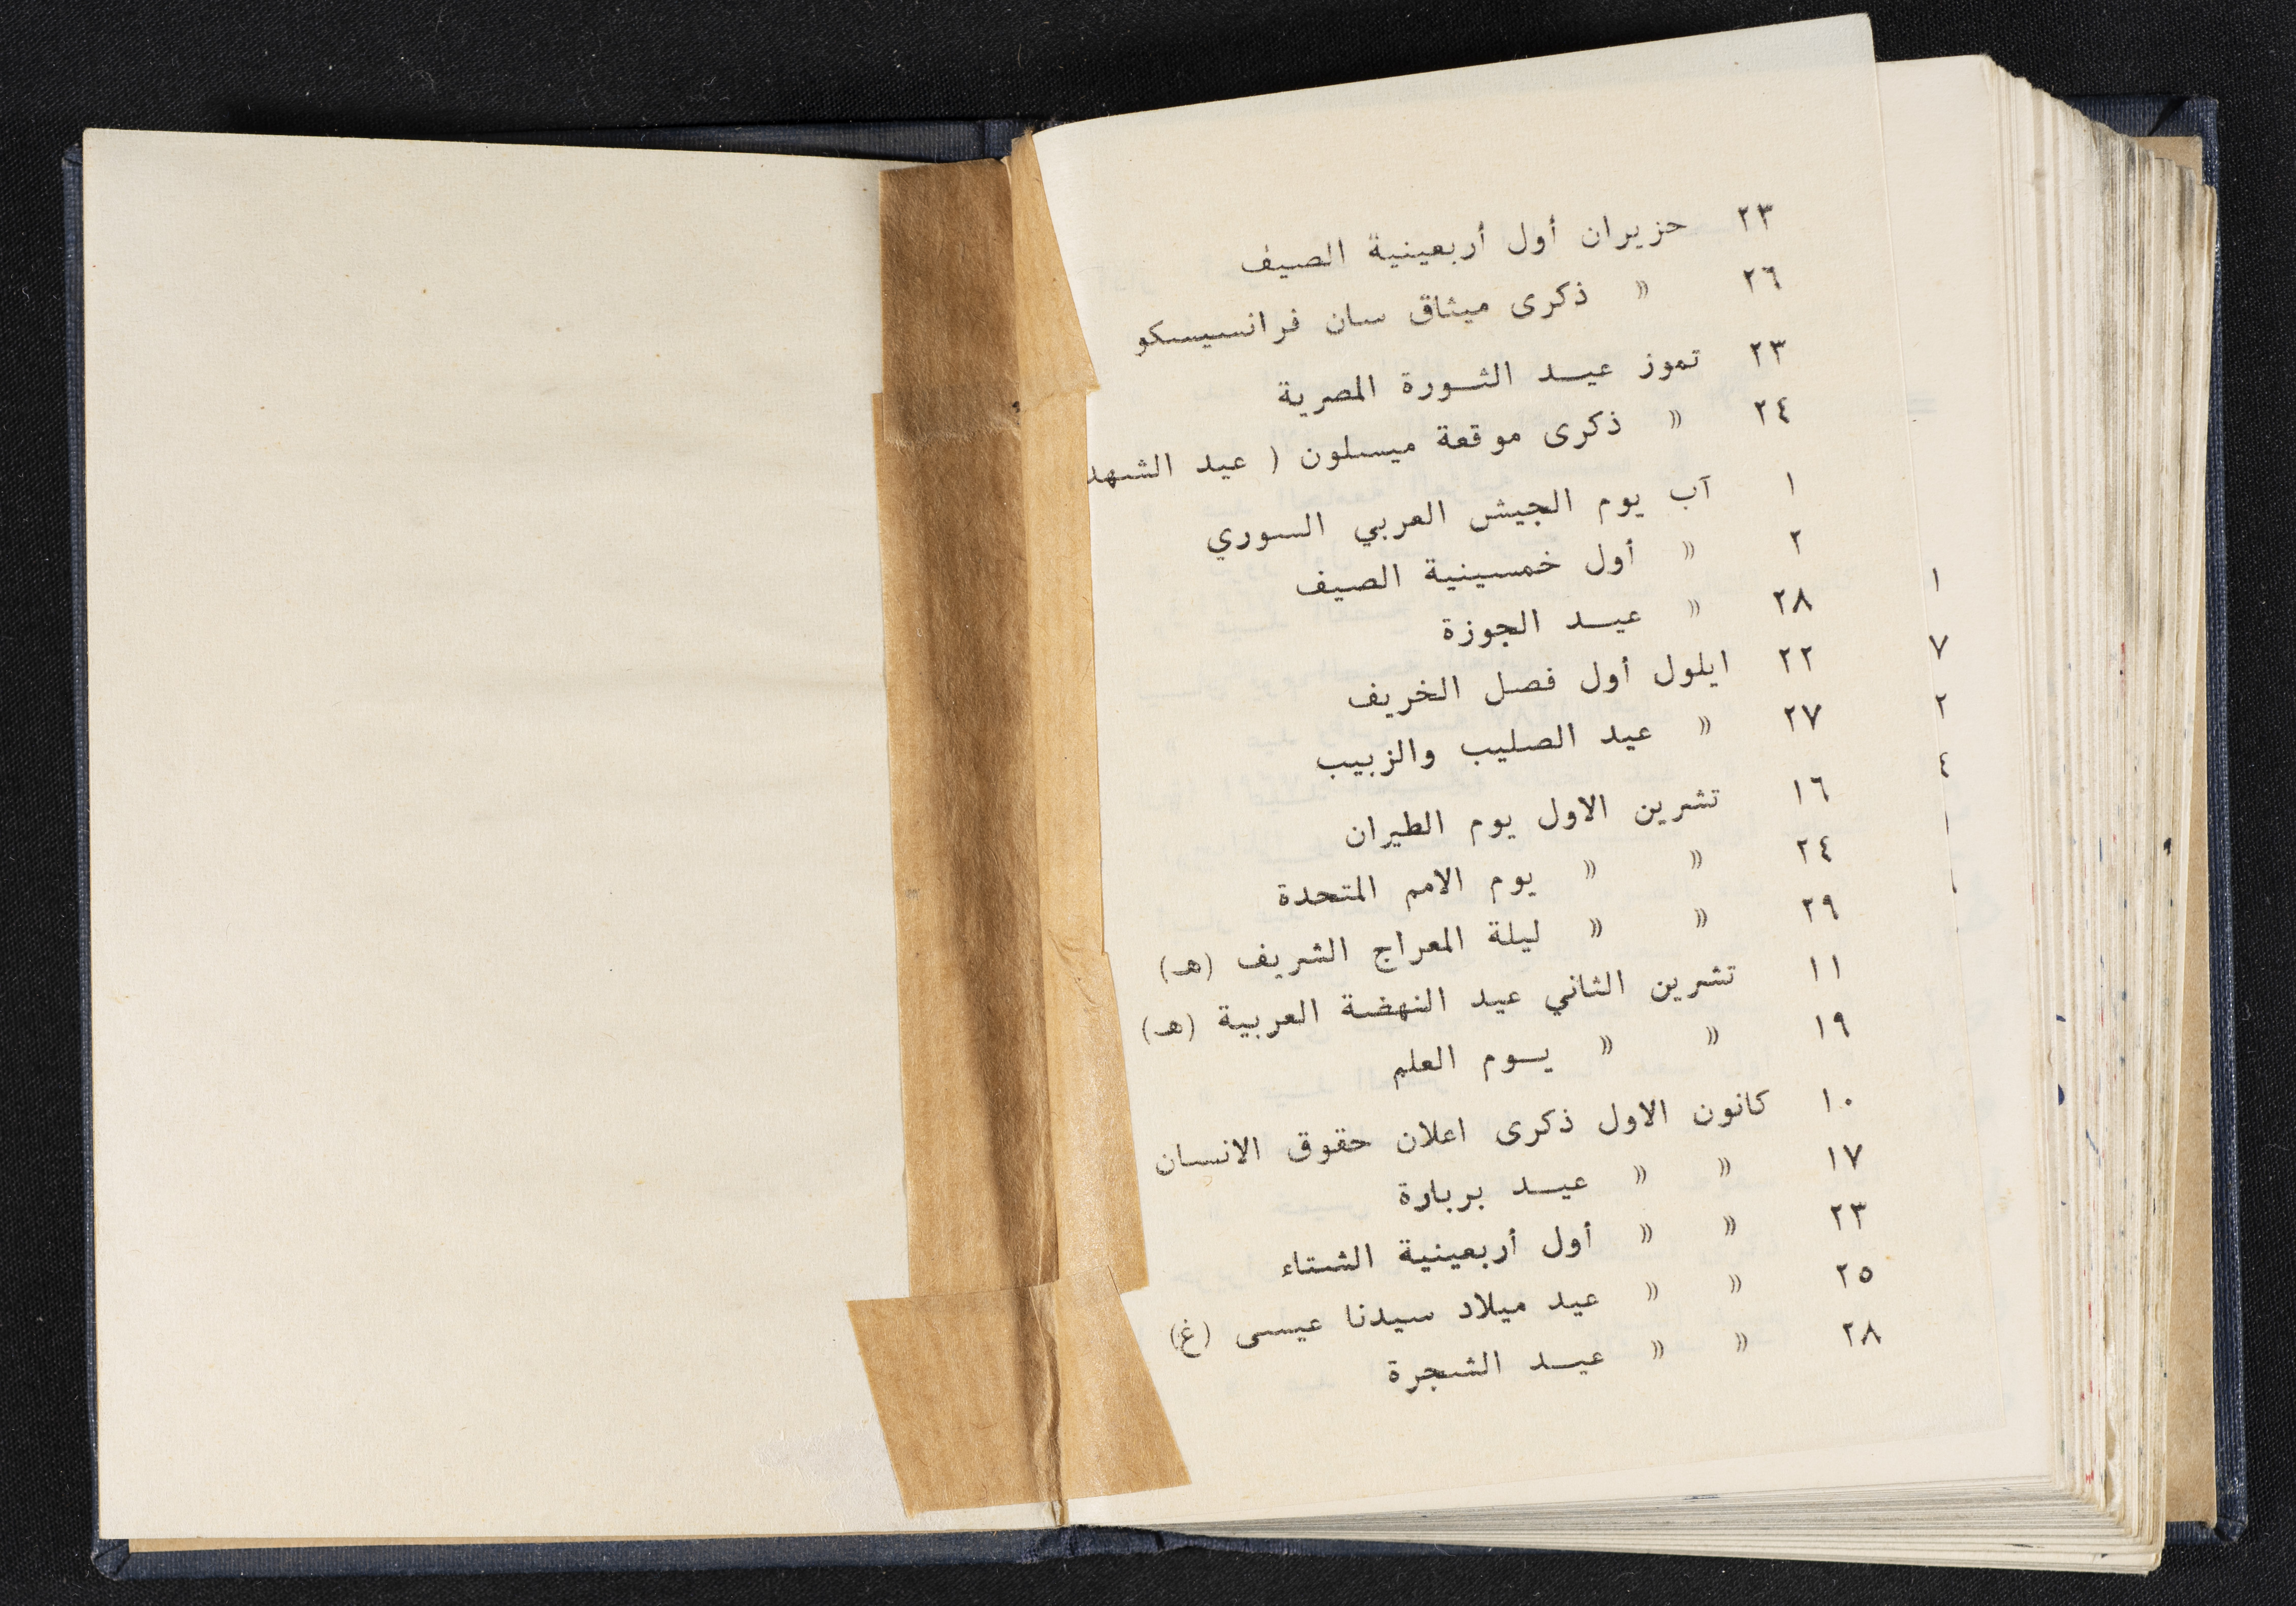 ٢٣ حزيران أول أربعينية الصيف
٢٦ » ذكرى ميثاق سان فرانسيسكو
٢٣ تموز عيد الثورة المصرية
٢٤ » ذكرى موقعة ميسلون ( عيد الشهد
١ آب يوم الجيش العربي السوري
٢ » أول خمسينية الصيف
٢٨ » عيد الجوزة
٢٢ ايلول أول فصل الخريف
٢٧ » عيد الصليب والزبيب
١٦ تشرين الاول يوم الطيران
٢٤ » » يوم الامم المتحدة
٢٩ » » ليلة المعراج الشريف (هـ)
١١ تشرين الثاني عيد النهضة العربية (هـ)
١٩ » » يوم العلم
١٠ كانون الاول ذكرى اعلان حقوق الانسان
١٧ » » عيد بربارة
٢٣ » » أول أربعينية الشتاء
٢٥ » » عيد ميلاد سيدنا عيسى (غ)
٢٨ » » عيد الشجرة
١
٧
٢
٤